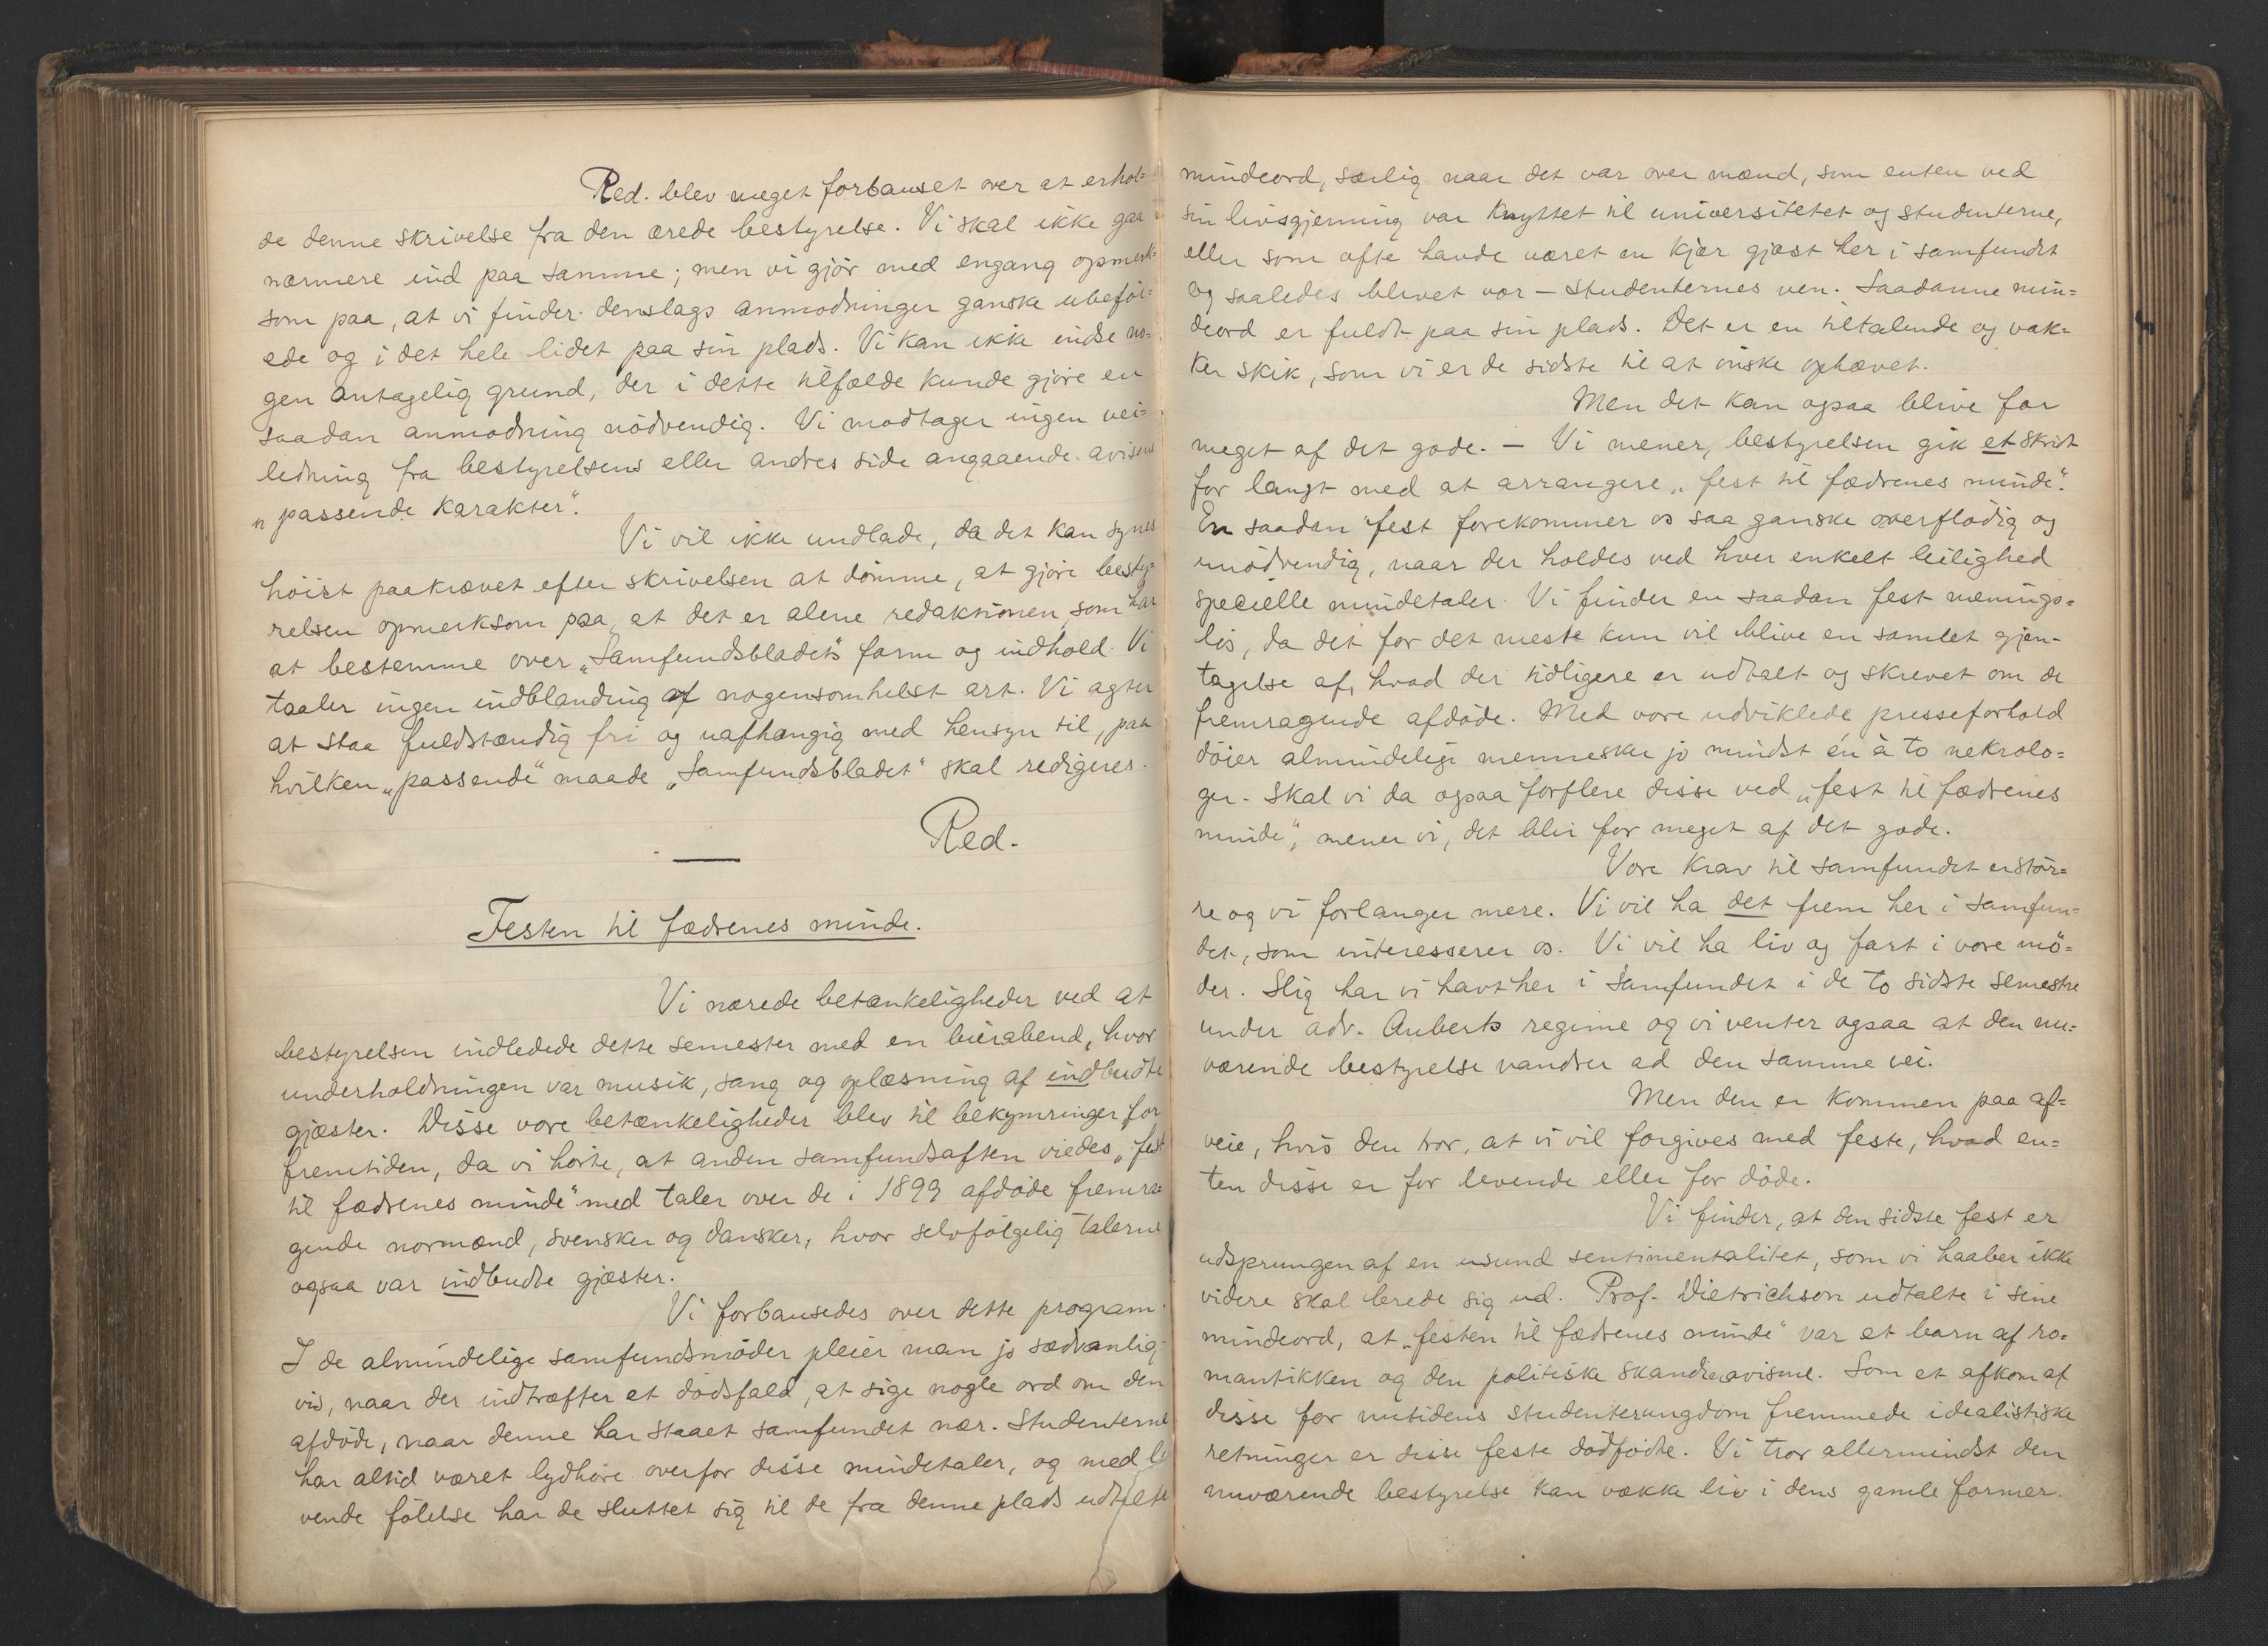 Red. blev meget forbauset over at erhol=
de denne skrivelse fra den ærede bestyrelse. Vi skal ikke gaa
nærmere ind paa samme; men vi gjör med engang opmerk=
som paa, at vi finder denslags anmodninger ganske ubeföi=
ede og i det hele lidet paa sin plads. Vi kan ikke indse no=
gen antagelig grund, der i dette tilfælde kunde gjöre en
saadan anmodning nödvendig. Vi modtager ingen vei=
ledning fra bestyrelsens eller andres side angaaende avisens
"passende karakter".
Vi vil ikke undlade, da det kan synes
höist paakrævet efter skrivelsen at dömme, at gjöre besty=
relsen opmerksom paa, at det er alene redaktionen, som har
at bestemme over „Samfundsbladets" form og indhold. Vi
taaler ingen indblanding af nogensomhelst art. Vi agter
at staa fuldstændig fri og uafhængig med hensyn til, paa
hvilken „passende" maade „Samfundsbladet" skal redigeres.
Red.
Festen til fædrenes minde.
Vi nærede betænkeligheder ved at
bestyrelsen indledede dette semester med en bierabend, hvor
underholdningen var musik, sang og oplæsning af indbudte
gjæster. Disse vore betænkeligheder blev til bekymringer for
fremtiden, da vi hörte, at anden samfundsaften viedes „fest
til fædrenes minde" med taler over de i 1899 afdöde fremra=
gende normænd, svensker og dansker, hvor selvfölgelig talerne
ogsaa var indbudte gjæster.
Vi forbausedes over dette program.
I de almindelige samfundsmöder pleier man jo sædvanlig=
vis, naar der indtræffer et dödsfald, at sige nogle ord om den
afdöde, naar denne har staaet samfundet nær. Studenterne
har altid været lydhöre overfor disse mindetaler, og med le
vende fölelse har de sluttet sig til de fra denne plads udtalte
mindeord, særlig naar det var over mænd, som enten ved
sin livsgjerning var knyttet til universitetet og studenterne,
eller som ofte havde været en kjær gjæst her i samfundet
og saaledes blevet vor – studenternes ven. Saadanne min=
deord er fuldt paa sin plads. Det er en tiltalende og vak=
ker skik, som vi er de sidste til at önske ophævet.
Men det kan ogsaa blive for
meget af det gode. – Vi mener, bestyrelsen gik et skridt
for langt med at arrangere „fest til fædrenes minde".
En saadan fest forekommer os saa ganske overflödig og
unödvendig, naar der holdes ved hver enkelt leilighed
specielle mindetaler. Vi finder en saadan fest menings=
lös, da det for det meste kun vil blive en samlet gjen=
tagelse af, hvad der tidligere er udtalt og skrevet om de
fremragende afdöde. Med vore udviklede presseforhold
döier almindelige mennesker jo mindst én à to nekrolo=
ger. Skal vi da ogsaa forflere disse ved „fest til fædrenes
minde", mener vi, det blir for meget af det gode.
Vore krav til samfundet er stör=
re og vi forlanger mere. Vi vil ha det frem her i samfun=
det, som interesserer os. Vi vil ha liv og fart i vore mö=
der. Slig har vi havt her i Samfundet i de to sidste semestre
under adv. Auberts regime og vi venter ogsaa at den nu=
værende bestyrelse vandrer ad den samme vei.
Men den er kommen paa af=
veie, hvis den tror, at vi vil forgives med feste, hvad en=
ten disse er for levende eller for döde.
Vi finder, at den sidste fest er
udsprungen af en usund sentimentalitet, som vi haaber ikke
videre skal brede sig ud. Prof. Dietrichson udtalte i sine
mindeord, at „festen til fædrenes minde" var et barn af ro=
mantikken og den politiske skandinavisme. Som et afkom af
disse for nutidens studenterungdom fremmede idealistiske
retninger er disse feste dödfödte. Vi tror allermindst den
nuværende bestyrelse kan vække liv i dens gamle former.